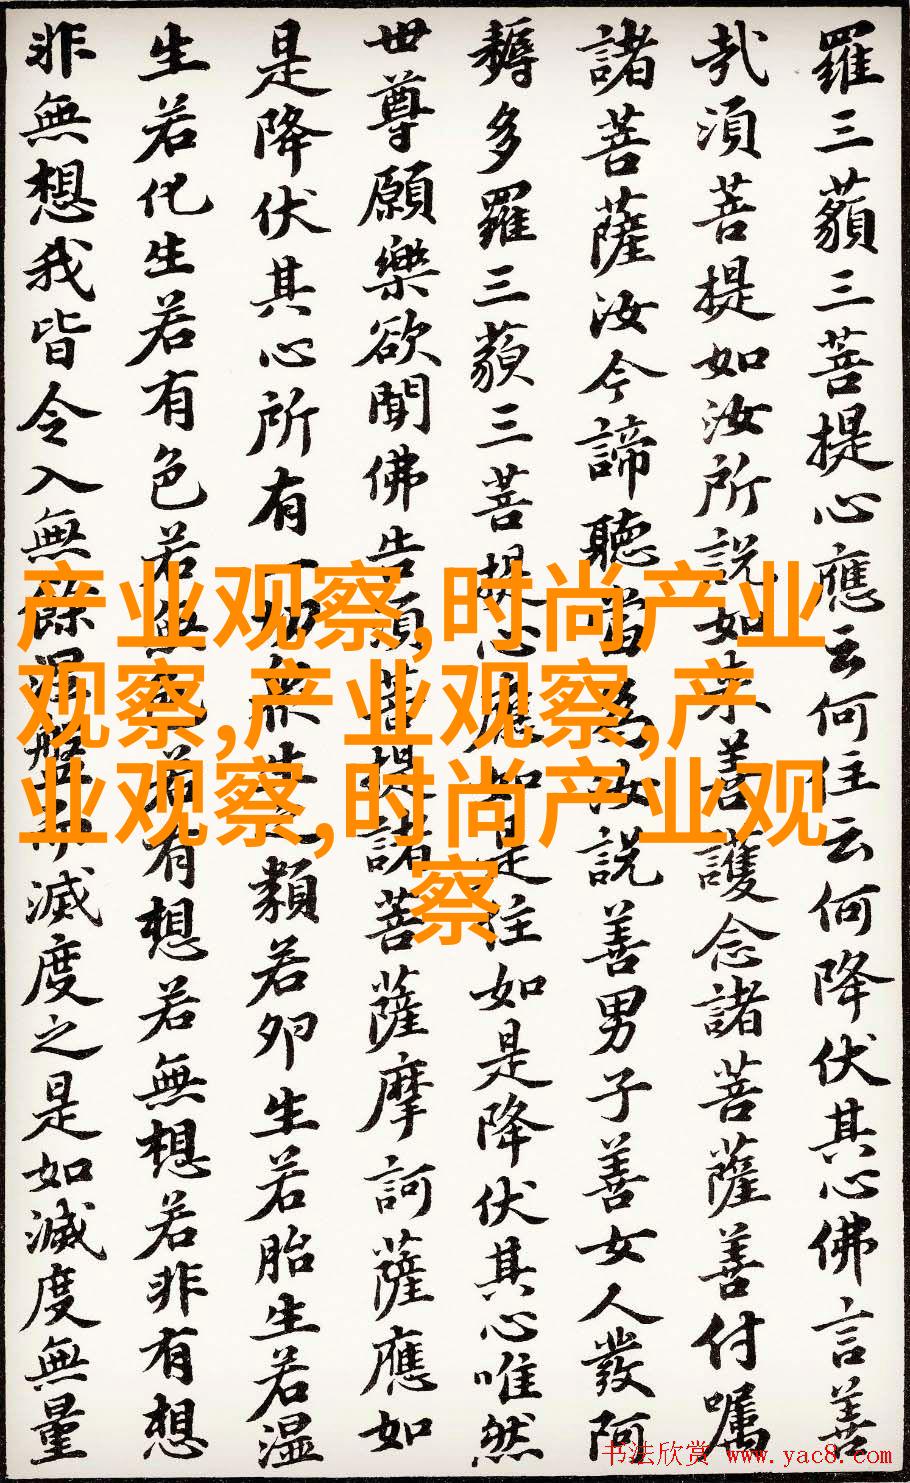 羅三藐三菩提心應云何住云何降伏其心佛言善
哉須菩提如汝所説如来善護念諸菩薩善付囑
諸菩薩汝今諦聽當為汝説善男子善女人發阿
耨多羅三藐三菩提心應如是住如是降伏其心唯然
世尊願樂欲聞佛告須菩提諸菩薩摩訶薩應如
是降伏其心所有一切衆生之類若卵生若胎生若濕
生若化生若有色若無色若有想若無想若非有想
非無想我皆令入無餘涅槃而滅度之是如滅度無量
产业观察,时尚产业
观察,产业观察,产
业观察,时尚产业观
察
书法欣赏 www.yac8.com